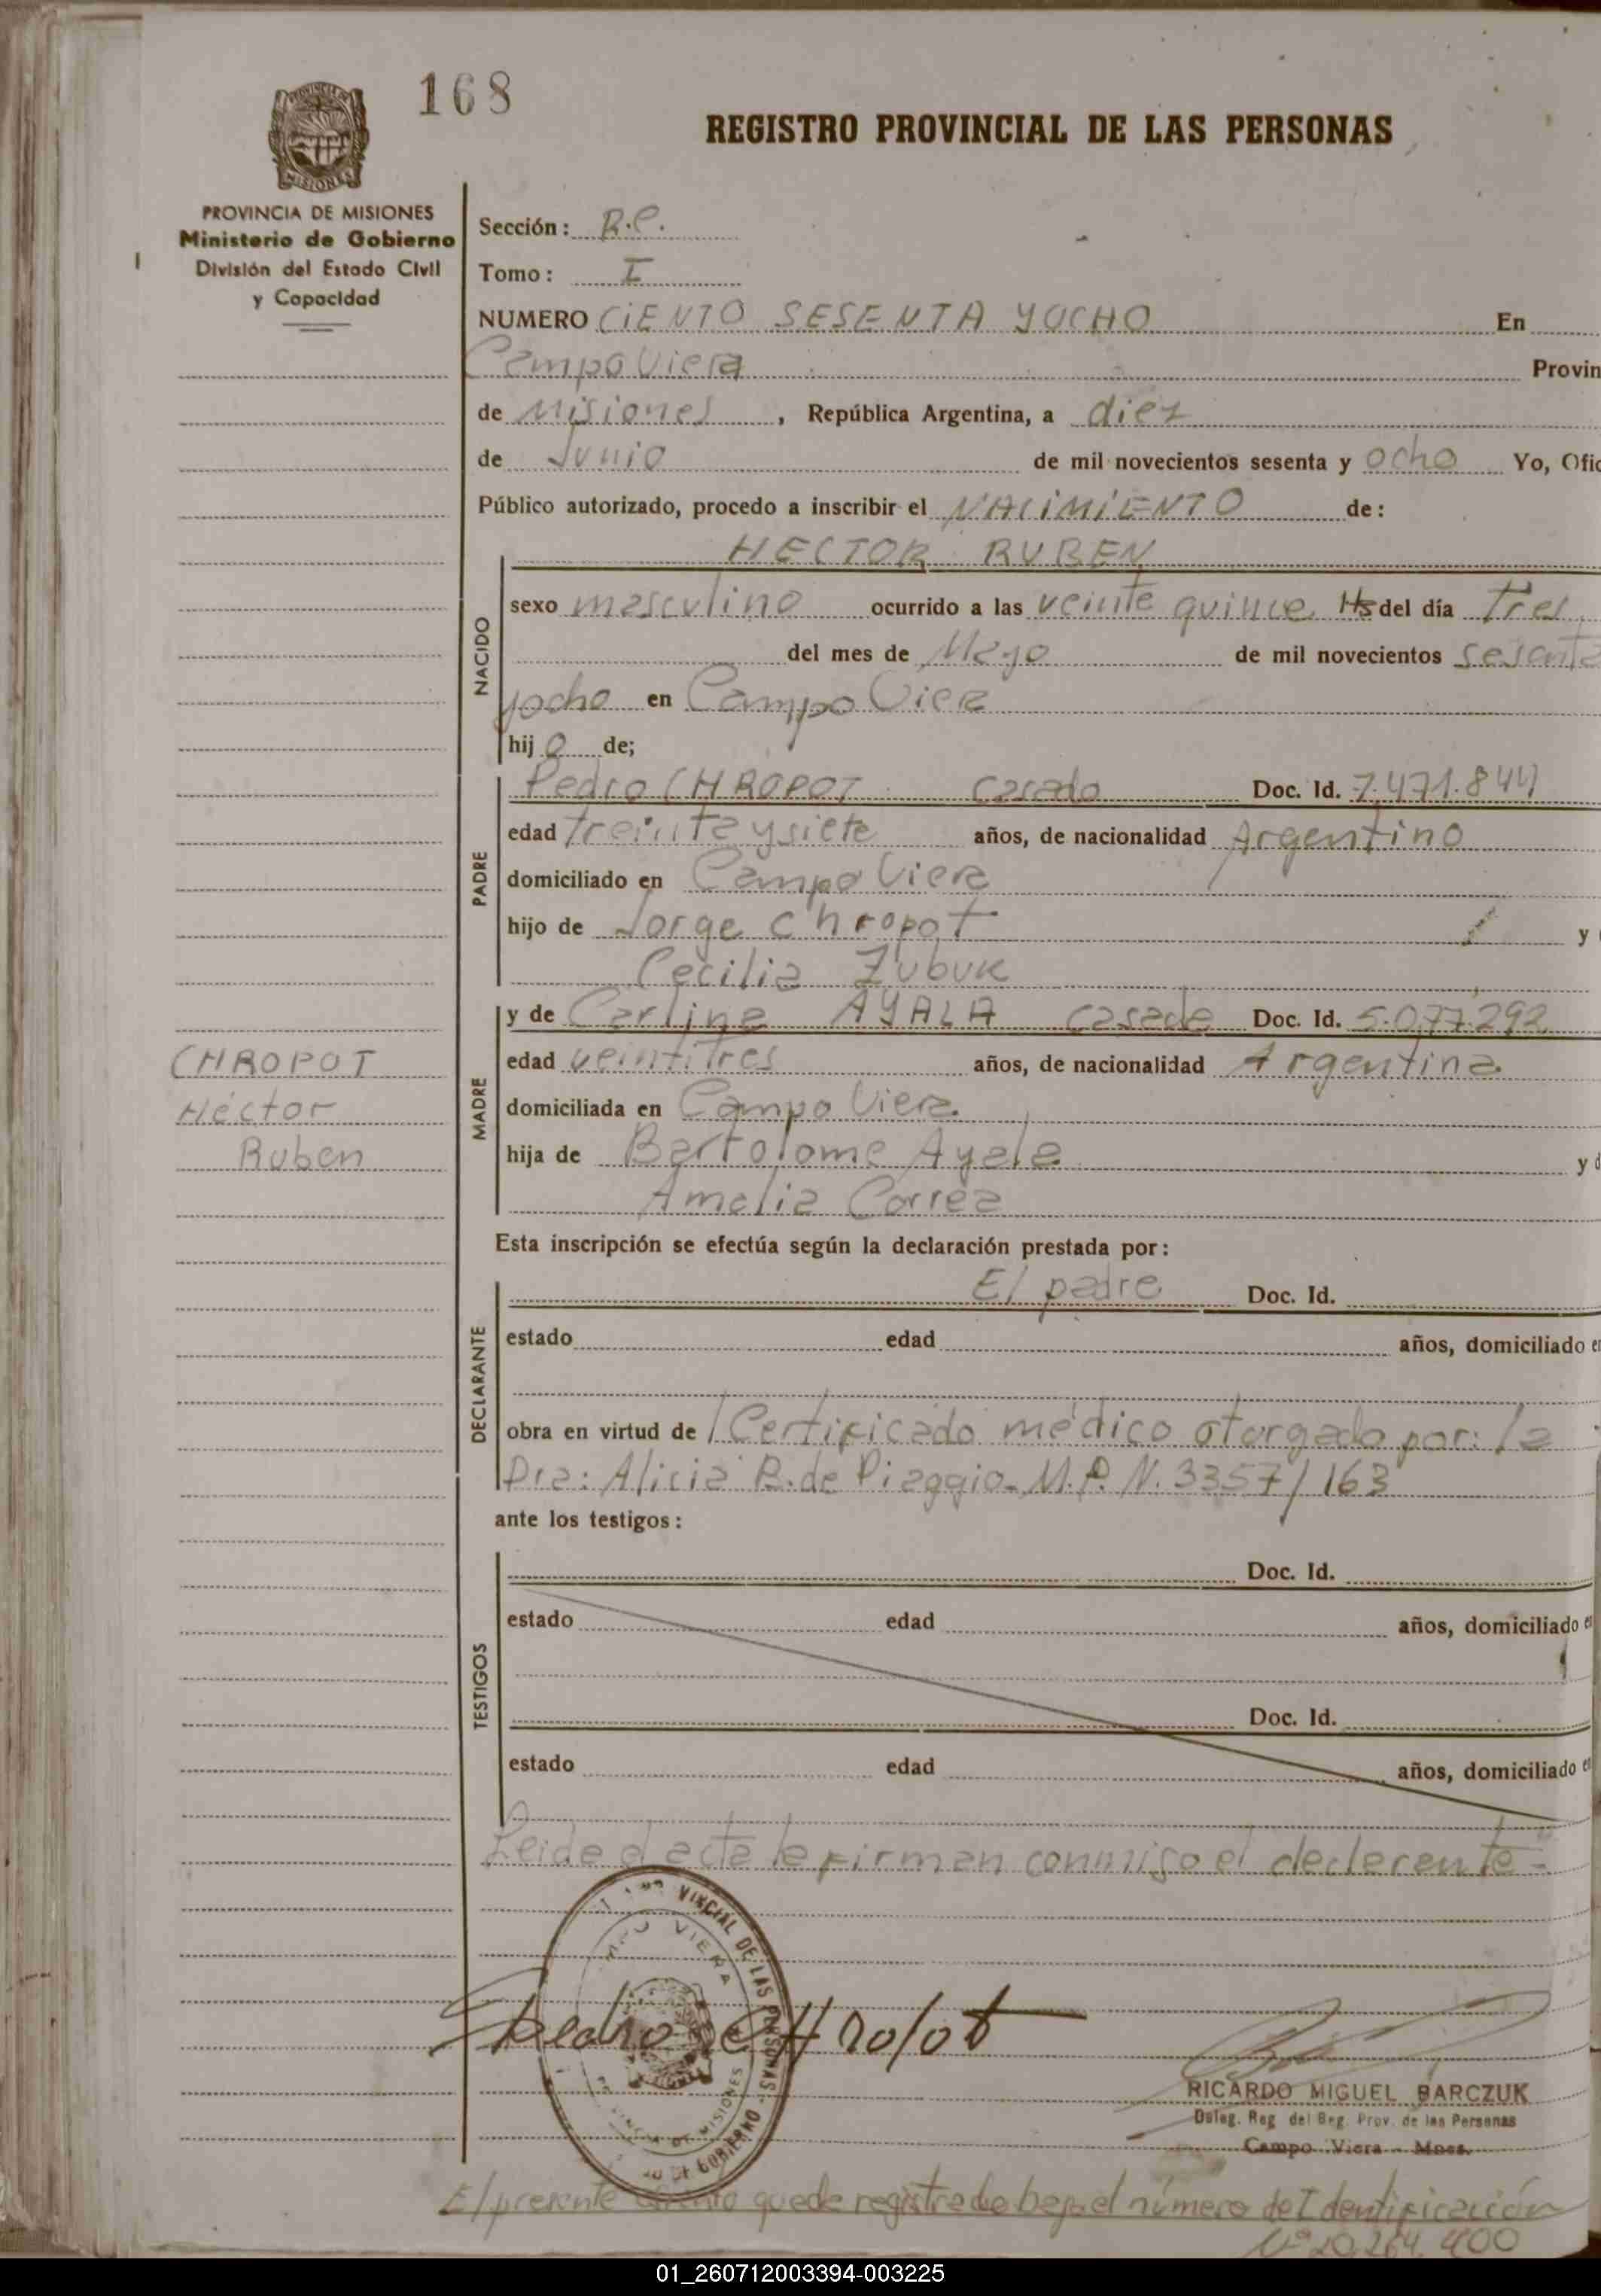 168
REGISTRO PROVINCIAL DE LAS PERSONAS
PROVINCIA DE MISIONES
Ministerio de Gobierno
División del Estado Civil
y Capacidad
Sección: R.P.
Tomo: I
NUMERO CIENTO SESENTA Y OCHO En
Campo Viera Provin
de Misiones, República Argentina, a diez
de Junio de mil novecientos sesenta y ocho Yo, Ofic
Público autorizado, procedo a inscribir el NACIMIENTO de:
HECTOR RUBEN
NACIDO
sexo masculino ocurrido a las veinte quince Hs del día tres
del mes de Mayo de mil novecientos sesenta
y ocho en Campo Viera
hijo de;
PADRE
Pedro CHROPOT casado Doc. Id. 7.471.844
edad treinta y siete años, de nacionalidad Argentino
domiciliado en Campo Viera
hijo de Jorge Chropot y
Cecilia Zubuk
MADRE
y de Carlina AYALA casada Doc. Id. 5.077.292
edad veintitres años, de nacionalidad Argentina
domiciliada en Campo Viera
hija de Bartolome Ayala y d
Amalia Correa
CHROPOT
Héctor
Ruben
Esta inscripción se efectúa según la declaración prestada por:
DECLARANTE
El padre Doc. Id.
estado edad años, domiciliado e
obra en virtud de Certificado médico otorgado por: la
Dra: Alicia B. de Piaggio - M.P. N. 3357/163
ante los testigos:
TESTIGOS
Doc. Id.
estado edad años, domiciliado e
Doc. Id.
estado edad años, domiciliado e
Leida el acta la firman conmigo el declarante-
VINCIAL DE LAS PERSONAS
VIERA
DE MISIONES
DE GOBIERNO
Pedro CHROPOT
RICARDO MIGUEL BARCZUK
Deleg. Reg. del Reg. Prov. de las Personas
Campo Viera - Mnes.
El presente queda registrado bajo el número de Identificación
Nº 20.264.400
01_260712003394-003225